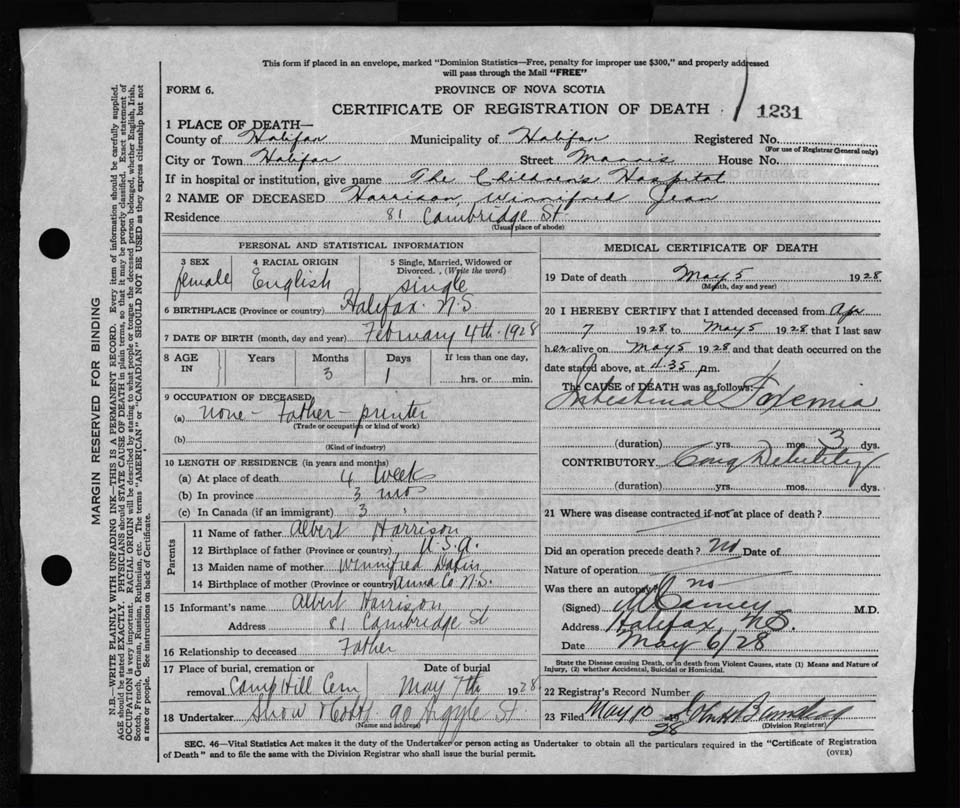 This form if placed in an envelope, marked "Dominion Statistics—Free, penalty for improper use $300," and properly addressed
will pass through the Mail "FREE"
FORM 6. PROVINCE OF NOVA SCOTIA
CERTIFICATE OF REGISTRATION OF DEATH 1231
1 PLACE OF DEATH—
County of Halifax Municipality of Halifax Registered No.
(For use of Registrar General only)
City or Town Halifax Street Morris House No.
If in hospital or institution, give name The Children's Hospital
2 NAME OF DECEASED Harrison, Winnifred Jean
Residence 81 Cambridge St.
(Usual place of abode)
PERSONAL AND STATISTICAL INFORMATION
3 SEX 4 RACIAL ORIGIN 5 Single, Married, Widowed or Divorced. (Write the word)
female English single
6 BIRTHPLACE (Province or country) Halifax N.S
7 DATE OF BIRTH (month, day and year) February 4th 1928
8 AGE IN Years Months 3 Days 1 If less than one day, hrs. or min.
9 OCCUPATION OF DECEASED
(a) none - father - printer
(Trade or occupation or kind of work)
(b)
(Kind of industry)
10 LENGTH OF RESIDENCE (in years and months)
(a) At place of death 4 weeks
(b) In province 3 mos
(c) In Canada (if an immigrant) 3 "
Parents
11 Name of father Albert Harrison
12 Birthplace of father (Province or country) U.S.A.
13 Maiden name of mother Winnifred
14 Birthplace of mother (Province or country) Anna Co N.S.
15 Informant's name Albert Harrison
Address 81 Cambridge St
16 Relationship to deceased Father
17 Place of burial, cremation or removal Camp Hill Cem Date of burial May 7th 1928
18 Undertaker Snow 90 Argyle St
(Name and address)
MEDICAL CERTIFICATE OF DEATH
19 Date of death May 5 1928
(Month, day and year)
20 I HEREBY CERTIFY that I attended deceased from Apr
7 1928 to May 5 1928 that I last saw
her alive on May 5 1928 and that death occurred on the
date stated above, at 4.35 pm.
The CAUSE of DEATH was as follows:
Intestinal Toxemia
(duration) yrs. mos. 3 dys.
CONTRIBUTORY Cong Debility
(duration) yrs. mos. dys.
21 Where was disease contracted if not at place of death?
Did an operation precede death? no Date of
Nature of operation
Was there an autopsy? no
(Signed) M.D.
Address Halifax, N.S.
Date May 6/28
State the Disease causing Death, or in death from Violent Causes, state (1) Means and Nature of
Injury, (2) whether Accidental, Suicidal or Homicidal.
22 Registrar's Record Number
23 Filed May 10 1928 John H
(Division Registrar)
SEC. 46—Vital Statistics Act makes it the duty of the Undertaker or person acting as Undertaker to obtain all the particulars required in the "Certificate of Registration
of Death" and to file the same with the Division Registrar who shall issue the burial permit. (OVER)
MARGIN RESERVED FOR BINDING
N.B.—WRITE PLAINLY WITH UNFADING INK—THIS IS A PERMANENT RECORD. Every item of information should be carefully supplied.
AGE should be stated EXACTLY. PHYSICIANS should STATE CAUSE OF DEATH in plain terms, so that it may be properly classified. Exact statement of
OCCUPATION is very important. RACIAL ORIGIN will be described by stating to what people or tongue the deceased person belonged, whether English, Irish,
Scotch, French, German, Russian, Ruthenian, etc. The terms "AMERICAN" or "CANADIAN" SHOULD NOT BE USED as they express citizenship but not
a race or people. See instructions on back of Certificate.